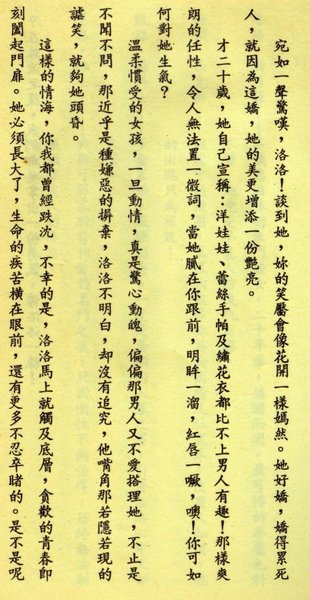 宛如一聲驚嘆，洛洛！談到她，妳的笑靨會像花開一樣嫣然。她好嬌，嬌得累死
人，就因為這嬌，她的美更增添一份艷亮。
才二十歲，她自己宣稱：洋娃娃、蕾絲手帕及繡花衣都比不上男人有趣！那樣爽
朗的任性，令人無法置一微詞，當她膩在你跟前，明眸一溜，紅唇一噘，噢！你可如
何對她生氣？
溫柔慣受的女孩，一旦動情，真是驚心動魄，偏偏那男人又不愛搭理她，不止是
不聞不問，那近乎是種嫌惡的摒棄，洛洛不明白，却沒有追究，他嘴角那若隱若現的
謔笑，就夠她頭昏。
這樣的情海，你我都曾經跌沈，不幸的是，洛洛馬上就觸及底層，貪歡的青春即
刻闔起門扉。她必須長大了，生命的疾苦橫在眼前，還有更多不忍卒睹的。是不是呢